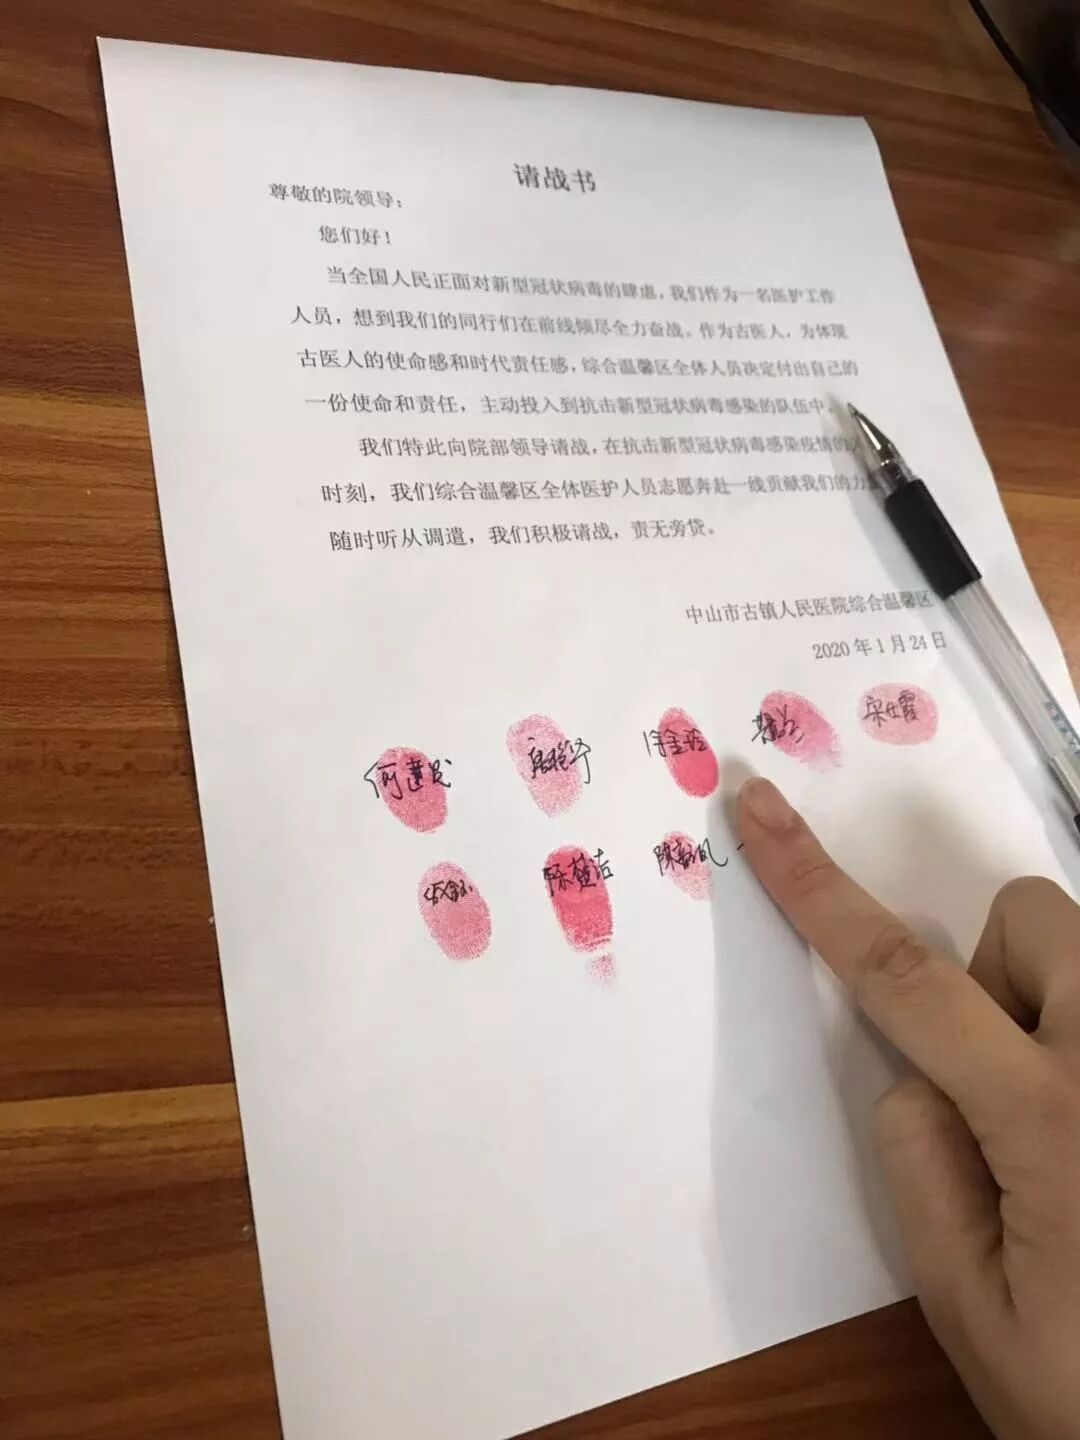 请战书
尊敬的院领导：
您们好！
当全国人民正面对新型冠状病毒的肆虐，我们作为一名医护工作
人员，想到我们的同行们在前线倾尽全力奋战。作为古医人，为体现
古医人的使命感和时代责任感，综合温馨区全体人员决定付出自己的
一份使命和责任，主动投入到抗击新型冠状病毒感染的队伍中。
我们特此向院部领导请战，在抗击新型冠状病毒感染疫情的
时刻，我们综合温馨区全体医护人员志愿奔赴一线贡献我们的力
随时听从调遣，我们积极请战，责无旁贷。
中山市古镇人民医院综合温馨区
2020 年 1 月 24 日
宋仕霞
陈楚洁